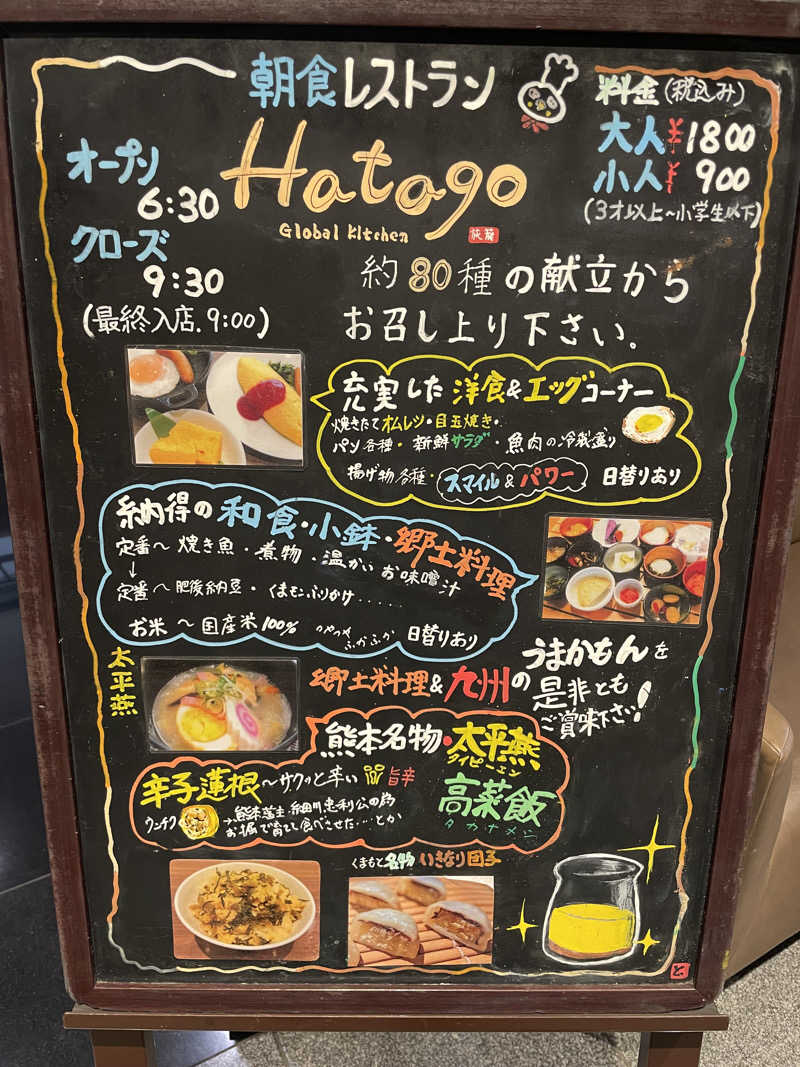 朝食レストラン
Hatago
Global Kitchen
旅籠
オープン
6:30
クローズ
9:30
(最終入店.9:00)
料金(税込み)
大人¥1800
小人¥900
(3才以上~小学生以下)
約80種の献立から
お召し上り下さい.
充実した洋食&エッグコーナー
焼きたてオムレツ・目玉焼き・
パン各種・新鮮サラダ・魚肉の冷製盛り
揚げ物各種・スマイル&パワー 日替りあり
納得の和食・小鉢・郷土料理
定番~焼き魚・煮物・温かいお味噌汁
↓
定番~肥後納豆・くまモンふりかけ......
お米~国産米100% つやつやふかふか 日替りあり
太平燕
郷土料理&九州のうまかもんを
是非とも
ご賞味下さい!
熊本名物・太平燕
タイピーエン
辛子蓮根~サクッと辛い 旨辛
高菜飯
タカナメシ
ウンチク
→熊本藩主・細川忠利公の為
お堀で育てし食べさせた....とか
くまもと名物いきなり団子
と